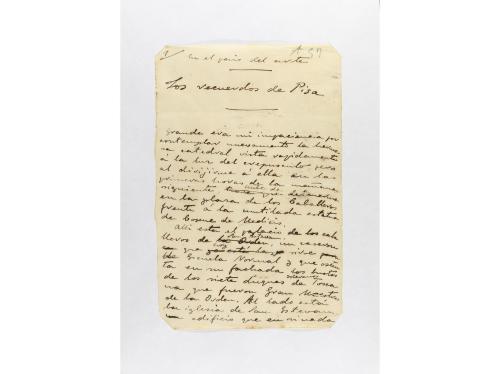 1/
En el país del arte
Los recuerdos de Pisa
Grande era mi impaciencia por
contemplar nuevamente la hermo
sa catedral vista rapidamente
á la luz del crepusculo pero
al dirijirme á ella en las
primeras horas de la mañana
siguiente, tuve que detenerme
en la plaza de los Caballeros
frente á la mutilada estatua
de Cosme de Médicis.
Allí está el palacio de los caba
lleros de la Orden, un caseron
que hoy sirve
de Escuela Normal y que osten
ta en su fachada los bustos
de los siete duques de Tosca
na que fueron Gran Maestres
de la Orden. Al lado está
la iglesia de San Estevan
edificio que